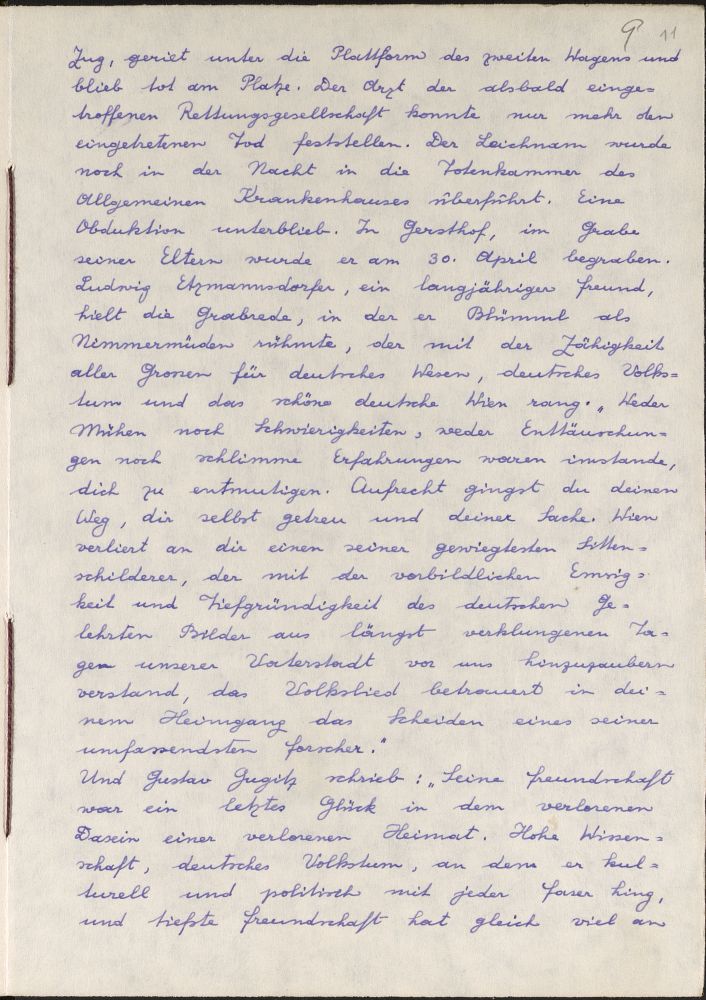 9 11
Zug, geriet unter die Plattform des zweiten Wagens und
blieb tot am Platze. Der Arzt der alsbald einge=
troffenen Rettungsgesellschaft konnte nur mehr den
eingetretenen Tod feststellen. Der Leichnam wurde
noch in der Nacht in die Totenkammer des
Allgemeinen Krankenhauses überführt. Eine
Obduktion unterblieb. In Gersthof, im Grabe
seiner Eltern wurde er am 30. April begraben.
Ludwig Etzmannsdorfer, ein langjähriger Freund,
hielt die Grabrede, in der er Blümml als
Nimmermüden rühmte, der mit der Zähigkeit
aller Grossen für deutsches Wesen, deutsches Volks=
tum und das schöne deutsche Wien rang. „Weder
Mühen noch Schwierigkeiten, weder Enttäuschun=
gen noch schlimme Erfahrungen waren imstande,
dich zu entmutigen. Aufrecht gingst du deinen
Weg, dir selbst getreu und deiner Sache. Wien
verliert an dir einen seiner gewiegtesten Sitten=
schilderer, der mit der vorbildlichen Emsig=
keit und Tiefgründigkeit des deutschen Ge=
lehrten Bilder aus längst verklungenen Ta=
gen unserer Vaterstadt vor uns hinzuzaubern
verstand, das Volkslied betrauert in dei=
nem Heimgang das Scheiden eines seiner
umfassendsten Forscher."
Und Gustav Gugitz schrieb: „Seine Freundschaft
war ein letztes Glück in dem verlorenen
Dasein einer verlorenen Heimat. Hohe Wissen=
schaft, deutsches Volkstum, an dem er kul=
turell und politisch mit jeder Faser hing,
und tiefste Freundschaft hat gleich viel an